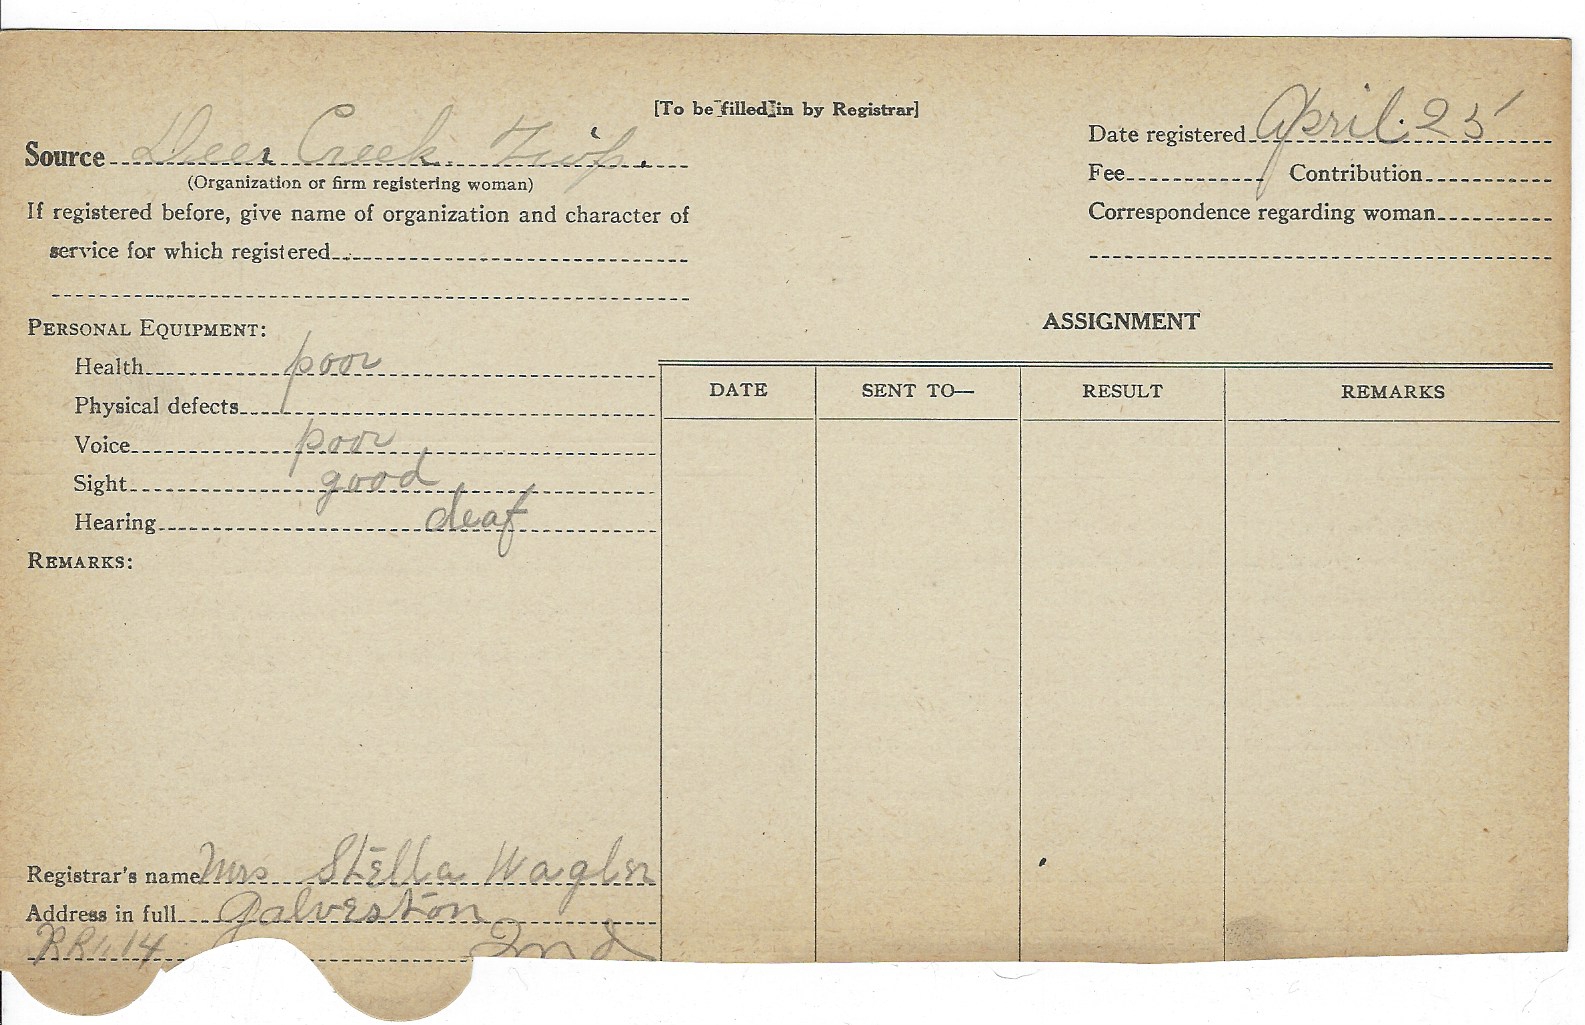 [To be filled in by Registrar]
Source Deer Creek Twp.
(Organization or firm registering woman)
If registered before, give name of organization and character of
service for which registered
Date registered April. 25
Fee Contribution
Correspondence regarding woman
PERSONAL EQUIPMENT:
Health poor
Physical defects
Voice poor
Sight good
Hearing deaf
REMARKS:
ASSIGNMENT
DATE SENT TO— RESULT REMARKS
Registrar's name Mrs Stella Wagler
Address in full Galveston
RR 14 Ind